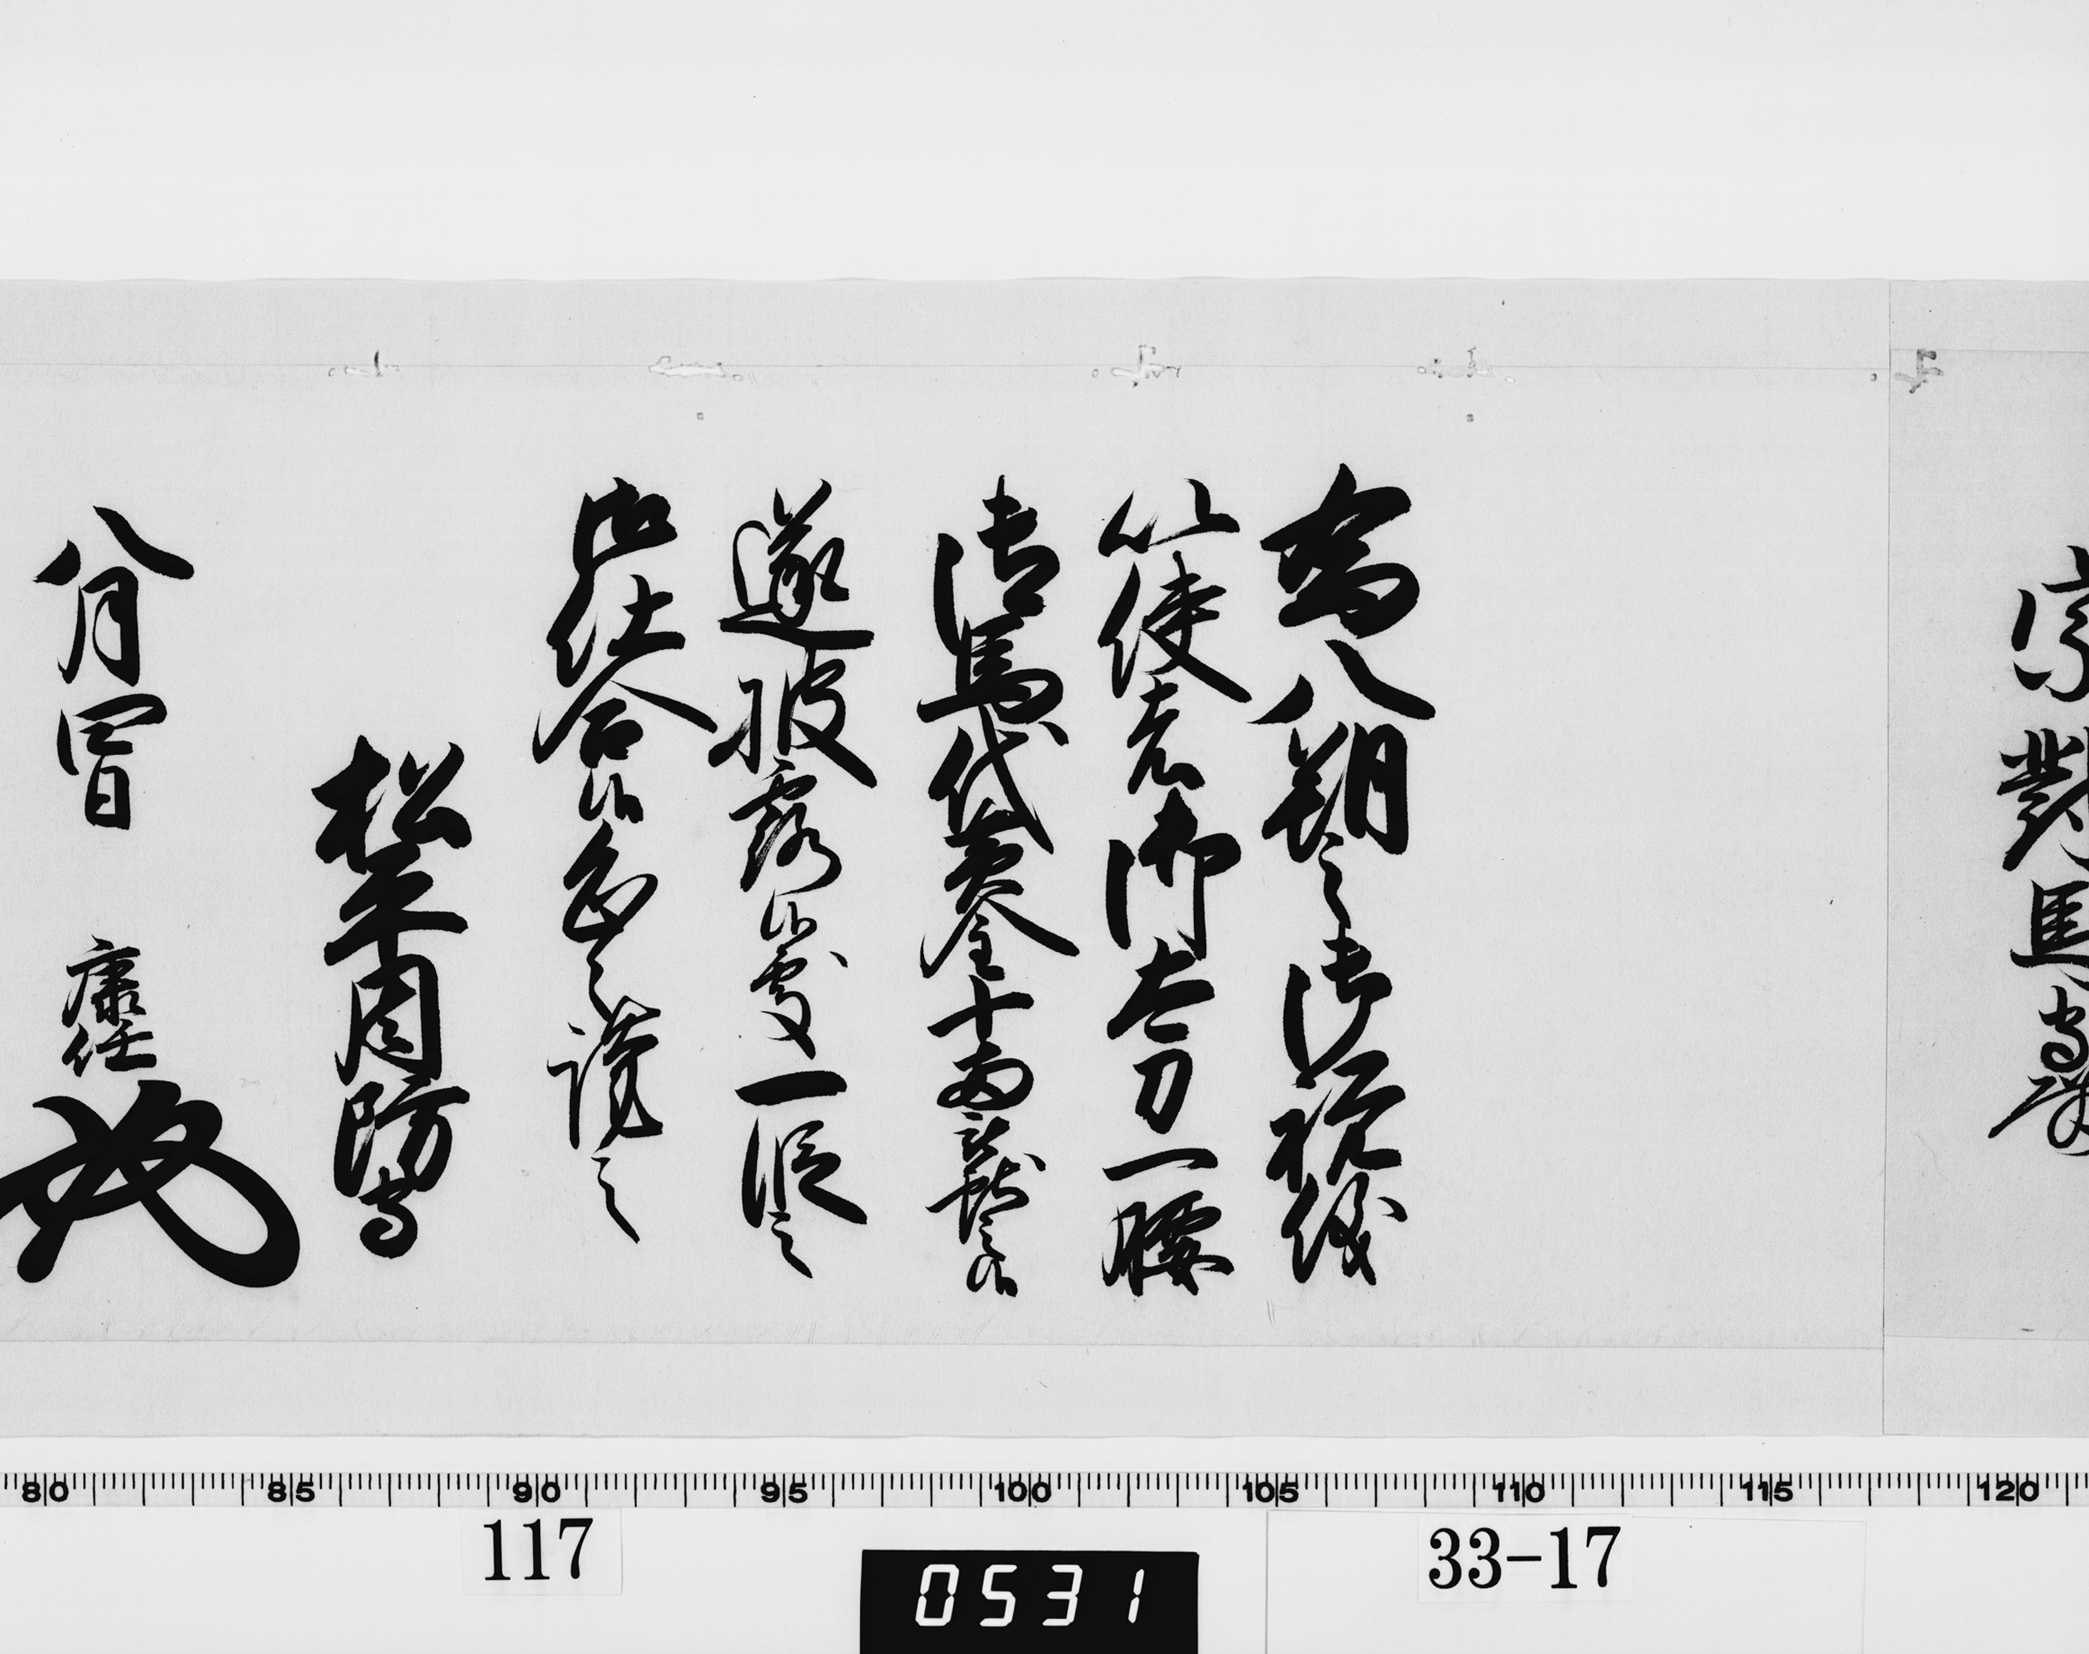 宗對馬守殿
為八朔之御祝儀
以使者御太刀一腰
御馬代黄金十両献之候
遂披露候處一段之
御仕合候恐々謹言
松平周防守
八月四日 康任
80 85 90 95 100 105 110 115 120
117 0531 33-17